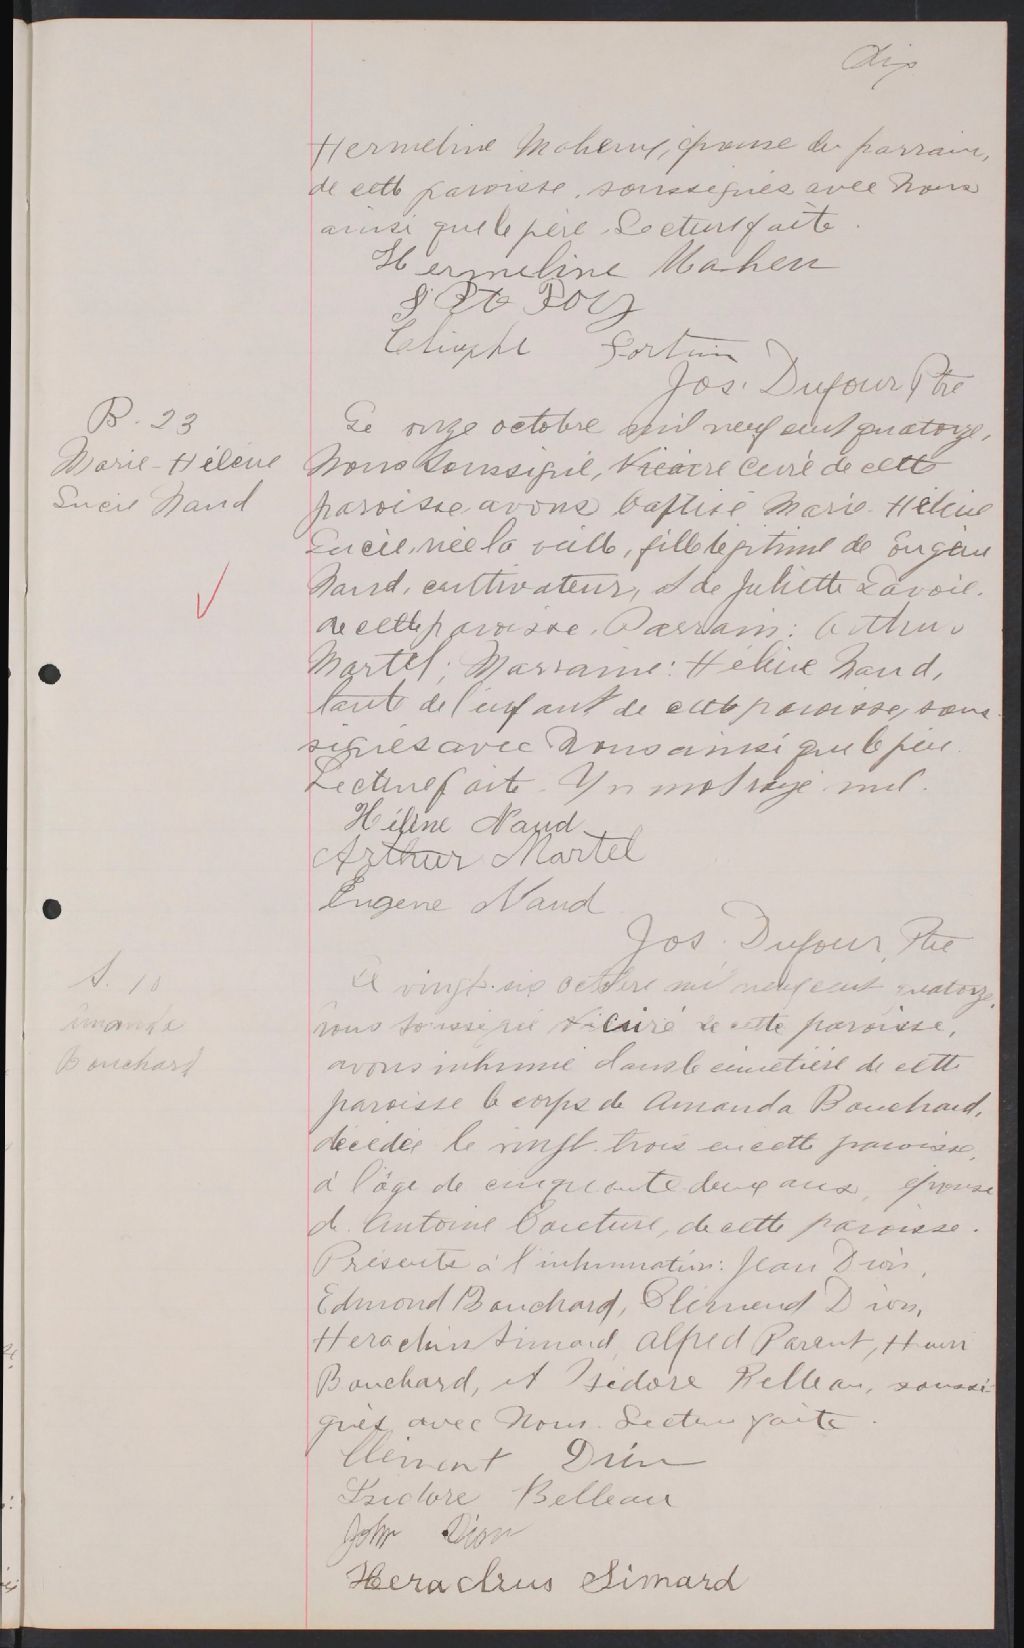 dix
Hermeline Maheux, épouse du parrain,
de cette paroisse, soussignés avec Nous
ainsi que le père. Lecture faite.
Hermeline Maheu
J Bte Roy
Fortin
Jos. Dufour Ptre
B. 23
Marie-Hélène
Lucie Naud
Le onze octobre mil neuf cent quatorze,
Nous soussigné, Vicaire Curé de cette
paroisse avons baptisé Marie-Hélène
Lucie, née la veille, fille légitime de Eugène
Naud, cultivateur, et de Juliette Lavoie.
de cette paroisse. Parrain: Arthur
Martel; Marraine: Hélène Naud,
tante de l'enfant de cette paroisse, sous-
signés avec Nous ainsi que le père.
Lecture faite. Un mot rayé nul.
Hélène Naud
Arthur Martel
Eugene Naud
Jos. Dufour, Ptre
S. 10
Amanda
Bouchard
Le vingt-six octobre mil neuf cent quatorze,
Nous soussigné curé de cette paroisse,
avons inhumé dans le cimetière de cette
paroisse le corps de Amanda Bouchard,
décédée le vingt-trois en cette paroisse,
à l'âge de cinquante deux ans, épouse
d'Antoine Couture, de cette paroisse.
Présents à l'inhumation: Jean Dion,
Edmond Bouchard, Clément Dion,
Heraclius Simard, Alfred Parent, Henri
Bouchard, et Isidore Belleau, soussi-
gnés avec Nous. Lecture faite.
Clément Dion
Isidore Belleau
John Dion
Heraclius Simard